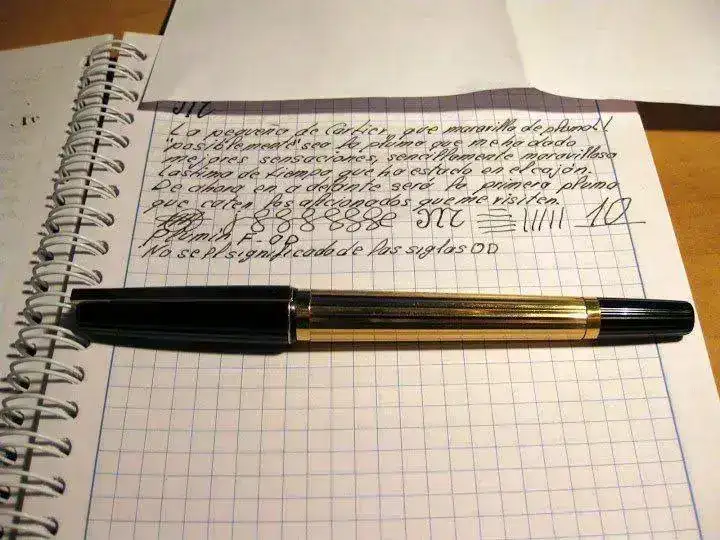 M
La pequeña de Cartier, que maravilla de pluma!!
"posiblemente" sea la pluma que me ha dado
mejores sensaciones, sencillamente maravillosa
Lastima de tiempo que ha estado en el cajón.
De ahora en adelante será la primera pluma
que caten los aficionados que me visiten.
M 10
Plumin F-OD
No se el significado de las siglas OD